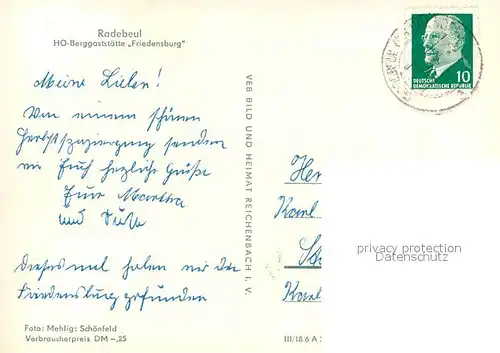 Radebeul
HO-Berggaststätte „Friedensburg"
Meine Lieben!
Von einem schönen
Herbstspaziergang senden
wir Euch herzliche Grüße
Eure Martha
und
diesesmal haben wir die
Friedensburg gefunden
Foto: Mehlig: Schönfeld
Verbraucherpreis DM -,25
VEB BILD UND HEIMAT REICHENBACH I. V.
10
DEUTSCHE
DEMOKRATISCHE REPUBLIK
Karl
Karl
privacy protection
Datenschutz
III/18/6 A